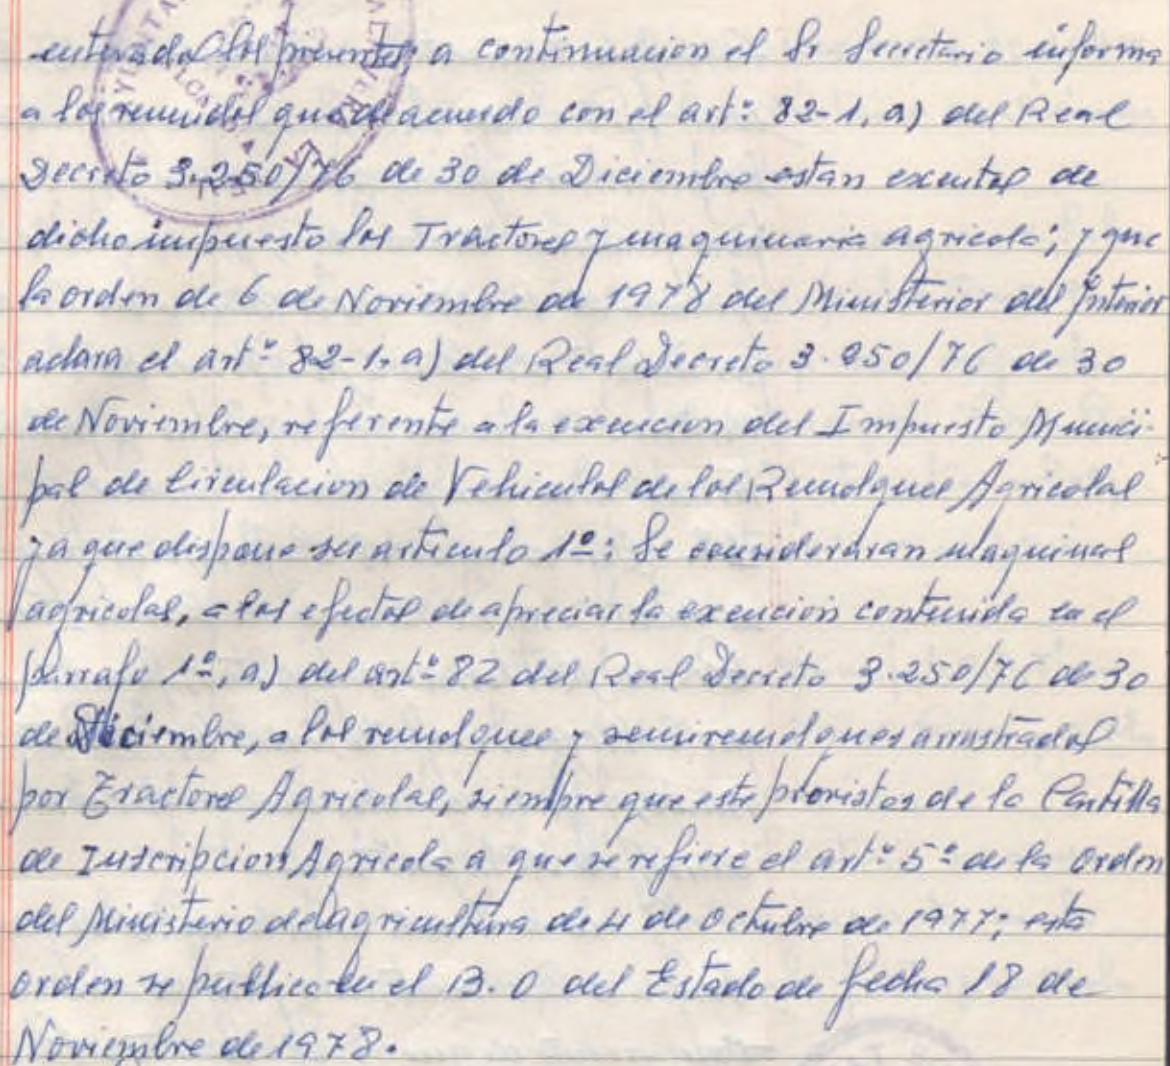 enterado los presentes; a continuacion el Sr Secretario informa
a los reunidos que de acuerdo con el artº 82-1, a) del Real
Decreto 3.250/76 de 30 de Diciembre estan exentos de
dicho impuesto los Tractores y maquinaria agricola; y que
la orden de 6 de Noviembre de 1978 del Ministerior del Interior
aclara el artº 82-1, a) del Real Decreto 3.250/76 de 30
de Noviembre, referente a la exencion del Impuesto Munici-
pal de Circulacion de Vehiculos de los Remolques Agricolas
ya que dispone su articulo 1º: Se consideraran maquinas
agricolas, a los efectos de apreciar la exencion contenida en el
parrafo 1º, a) del artº 82 del Real Decreto 3.250/76 de 30
de Diciembre, a los remolques y semiremolques arrastrados
por Tractores Agricolas, siempre que este provistos de la Cartilla
de Inscripcion Agricola a que se refiere el artº 5º de la Orden
del Ministerio de Agricultura de 4 de Octubre de 1977; esta
orden se publica en el B.O del Estado de fecha 18 de
Noviembre de 1978.